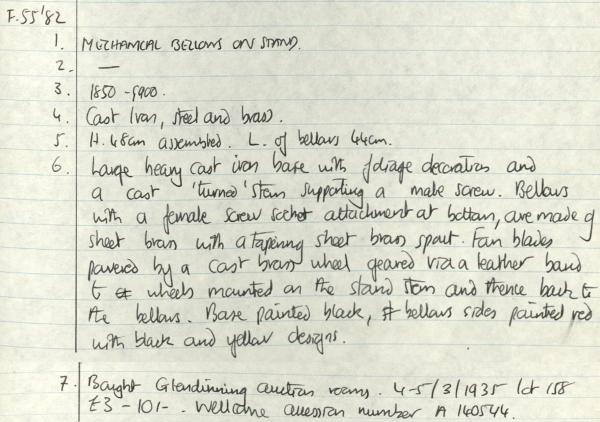 F.55'82
1. MECHANICAL BELLOWS ON STAND.
2. —
3. 1850 - 1900.
4. Cast Iron, steel and brass.
5. H. 48cm assembled. L. of bellows 44cm.
6. Large heavy cast iron base with foliage decoration and
a cast 'turned' stem supporting a male screw. Bellows
with a female screw socket attachment at bottom, are made of
sheet brass with a tapering sheet brass spout. Fan blades
powered by a cast brass wheel geared via a leather band
to wheels mounted on the stand item and thence back to
the bellows. Base painted black, bellows sides painted red
with black and yellow designs.
7. Bought Glendinning auction rooms. 4-5/3/1935 lot 158
£3 - 10/-. Wellcome accession number A 140544.